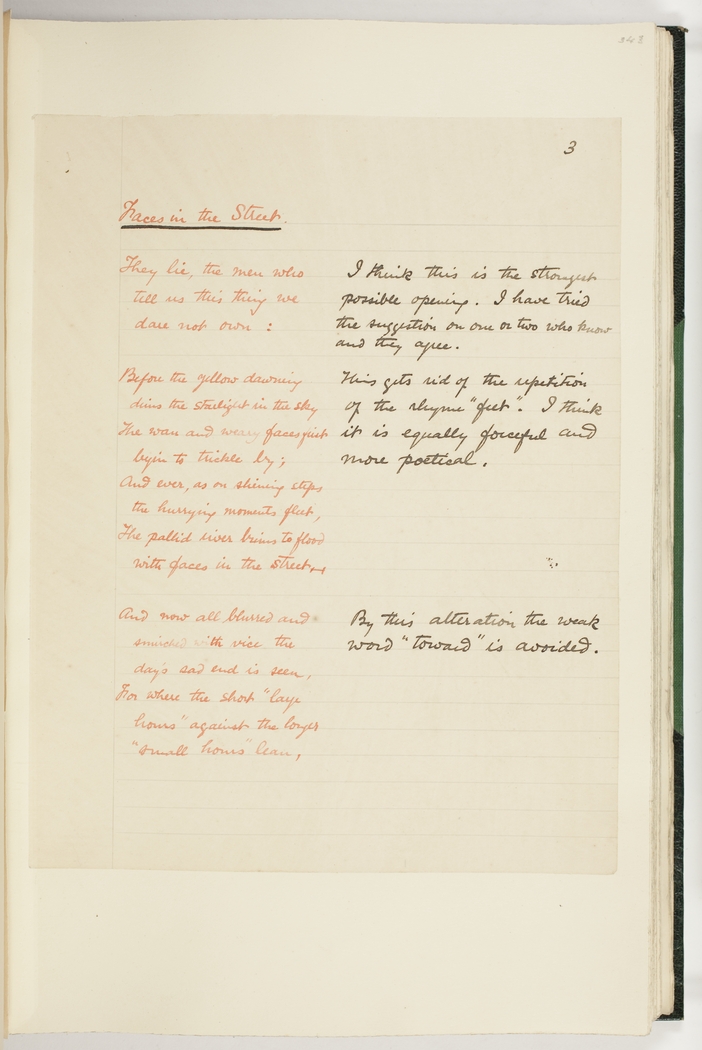 3
Faces in the Street.
They lie, the men who
tell us this thing we
dare not own :
I think this is the strongest
possible opening. I have tried
the suggestion on one or two who know
and they agree.
Before the yellow dawning
dims the starlight in the sky
The wan and weary faces first
begin to trickle by;
And ever, as on shining steps
the hurrying moments fleet,
The pallid river brims to flood
with faces in the street
This gets rid of the repetition
of the rhyme "feet". I think
it is equally forceful and
more poetical.
And now all blurred and
smirched with vice the
day's sad end is seen,
For where the short "large
hours" against the longer
"small hours" lean,
By this alteration the weak
word "toward" is avoided.